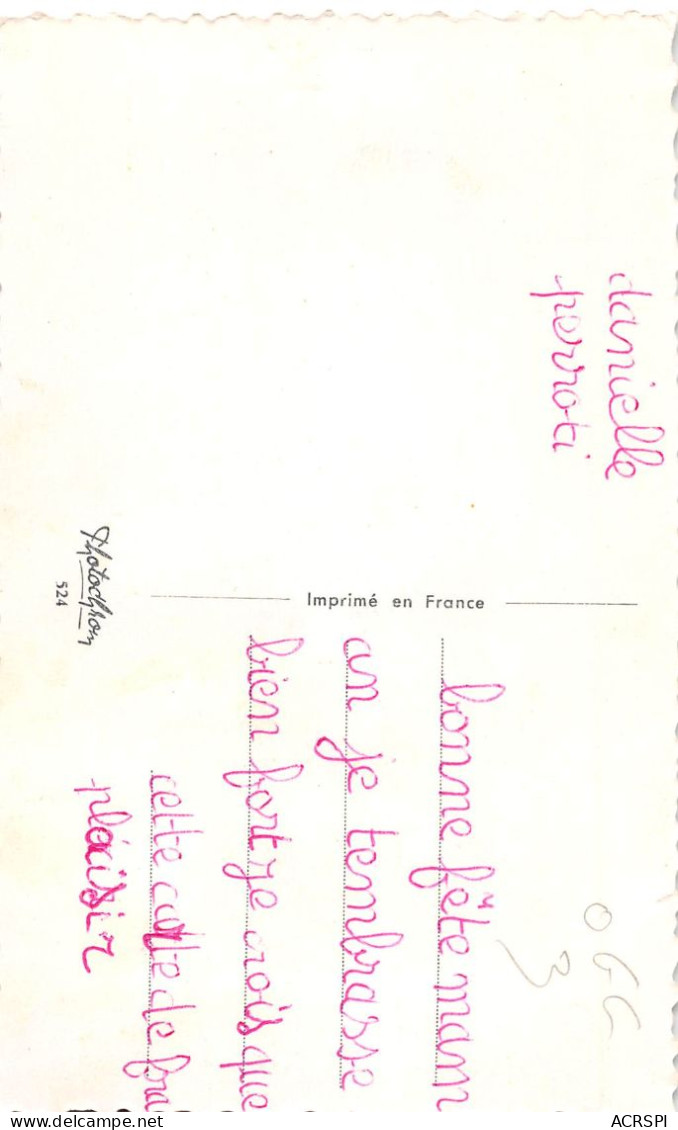 danielle
perroti
Imprimé en France
Photochrom
524
bonne fête mam
an je tembrasse
bien fort je crois que
cette carte de fra
plaisir
OGC
3
ACRSPI